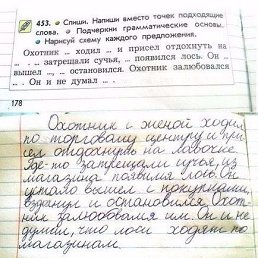 453. • Спиши. Напиши вместо точек подходящие
слова. • Подчеркни грамматические основы.
• Нарисуй схему каждого предложения.
Охотник ... ходил ... и присел отдохнуть на
... . ... затрещали сучья, ... появился лось. Он ...
вышел ..., ... остановился. Охотник залюбовался
... . Он и не думал ... .
178
Охотник с женой ходил
по торговому центру и при-
сел отдохнуть на лавочке.
Где-то затрещали сучья, из
магазина появился лось. Он
устало вышел с покупками,
вздохнул и остановился. Охот-
ник залюбовался им. Он и не
думал, что лоси ходят по
магазинам.